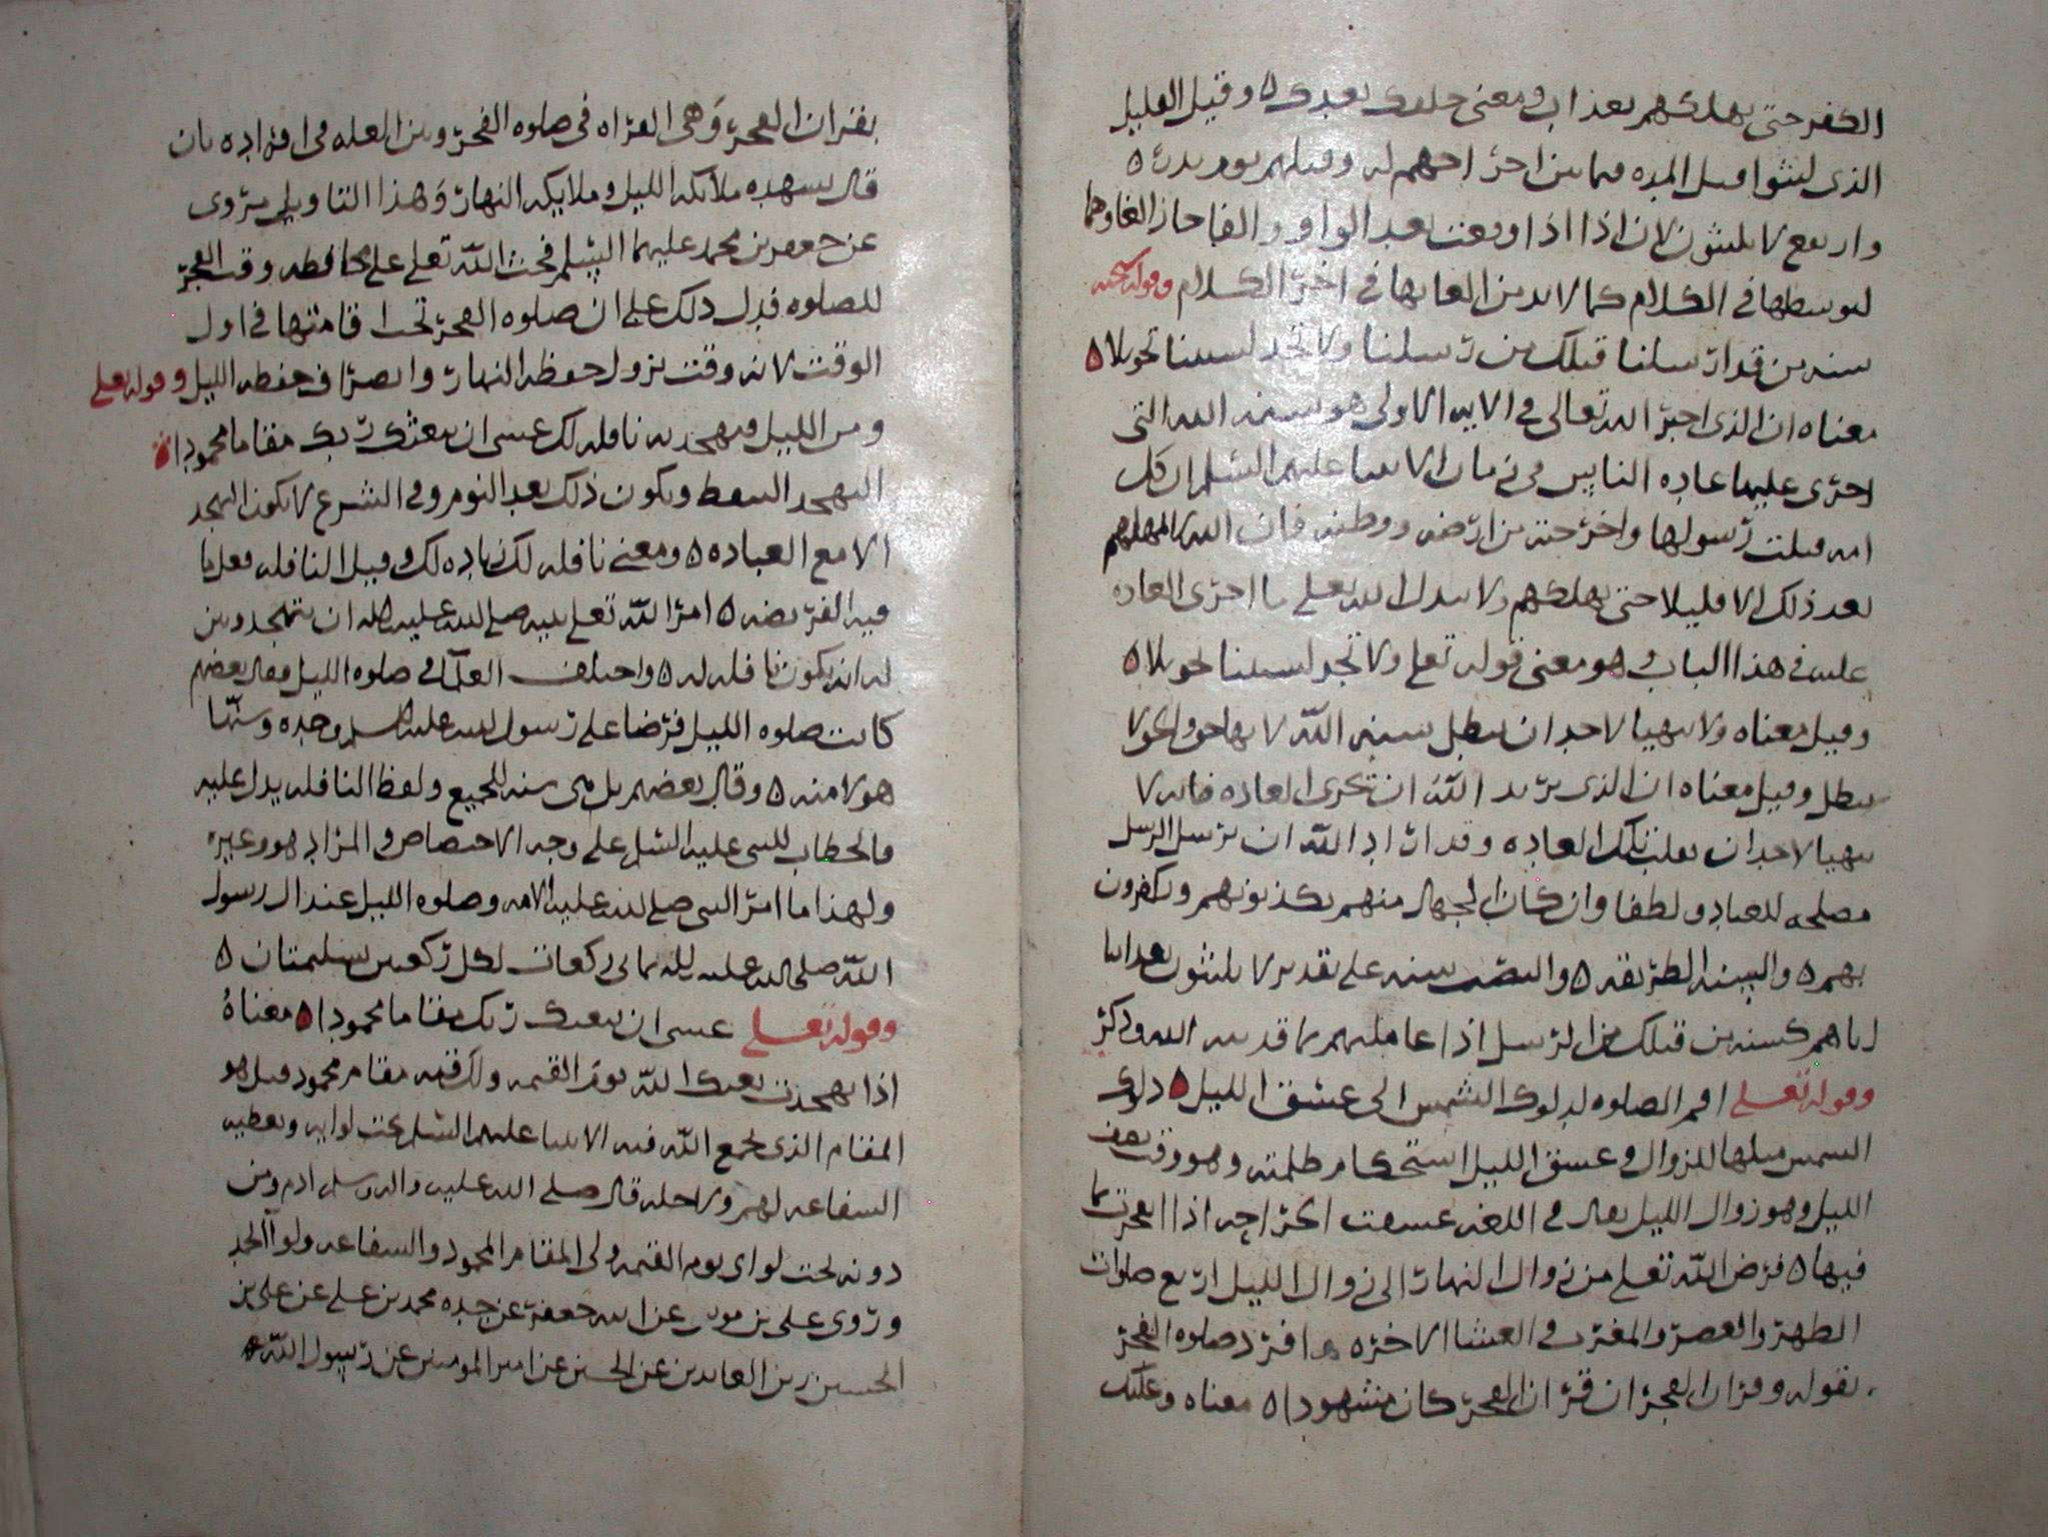 الكفر حتى يهلكهم بعذاب ومعنى خلفك بعدك ه وقيل القليل
الذى لبثوا قبل المده فيما بين اخر اجهم له وقتلهم يوم بدر ه
وارتفع لا يلبثون لان اذا اذا وقعت بعد الواو والفا جاز الغاوها
لتوسطها فى الكلام كما لا بد من الغايها فى اخر الكلام وقوله سبحنه
سنه من قد ارسلنا قبلك من رسلنا ولا تجد لسنتنا تحويلا ه
معناه ان الذى اخبر الله تعالى فى الايه الاولى هو سنه الله التى
اجرى عليها عاده الناس فى زمان الانبيا عليهم السلم ان كل
امه قتلت رسولها واخرجته من ارضه ووطنه فان الله لا يمهلهم
بعد ذلك الا قليلا حتى يهلكهم ولا يبدل الله تعلى ما اجرى العاده
عليه فى هذا الباب وهو معنى قوله تعلى ولا تجد لسنتنا تحويلا ه
وقيل معناه ولا يتهيا لاحد ان يبطل سنه الله لانها حق والحق لا
يبطل وقيل معناه ان الذى يريد الله ان تجرى العاده فانه لا
يتهيا لاحد ان يقلب تلك العاده وقد اراد الله ان يرسل الرسل
مصلحه للعباد ولطفا وان كان الجهال منهم يكذبونهم ويكفرون
بهم ه والسنه الطريقه ه والتصب سنه على تقدير لا يلبثون بعدابنا
اياهم كسنه من قبلك من الرسل اذا عاملهم بما قد بينه الله وذكر
وقوله تعلى اقم الصلوه لدلوك الشمس الى غسق الليل ه دلوك
الشمس ميلها للزوال وغسق الليل استحكام ظلمته وهو وقت نصف
الليل وهو زوال الليل يقال فى اللغه غسقت الجراحه اذا انفجرت بما
فيها ه فرض الله تعلى من زوال النهار الى زوال الليل اربع صلوات
الظهر والعصر والمغرب والعشا الاخره ه وافرد صلوه الفجر
بقوله وقران الفجر ان قران الفجر كان مشهودا ه معناه وعليك
بقران الفجر وهى القراه فى صلوه الفجر وبين العله فى افراده بان
قال يشهده ملائكه الليل وملايكه النهار وهذا التاويل يروى
عن جعفر بن محمد عليهما السلم فحث الله تعلى على محافظه وقت الفجر
للصلوه فدل ذلك على ان صلوه الفجر تجب اقامتها فى اول
الوقت لانه وقت نزول حفظه النهار وانصراف حفظه الليل وقوله تعلى
ومن الليل فتهجد به نافله لك عسى ان يبعثك ربك مقاما محمودا ه
التهجد التيقظ ويكون ذلك بعد النوم وفى الشرع لا يكون التهجد
الا مع العباده ه ومعنى نافله لك زياده لك وقيل النافله فعل ما
فيه الفريضه ه امر الله تعلى نبيه صلى الله عليه واله ان يتهجد وبين
له انه يكون نافله له ه واختلف العلما فى صلوه الليل فقال بعضهم
كانت صلوه الليل فرضا على رسول الله عليه السلم وحده وسنها
هو لامته ه وقال بعضهم بل هى سنه للجميع ولفظ النافله يدل عليه
فالخطاب للنبى عليه السلم على وجه الاختصاص والمراد هو وغيره
ولهذا ما امر النبى صلى الله عليه الامه وصلوه الليل عند ال رسول
الله صلى الله عليه واله ثمانى ركعات لكل ركعتين تسليمتان ه
وقوله تعلى عسى ان يبعثك ربك مقاما محمودا ه معناه
اذا تهجدت بعثك الله يوم القيمه ولك فيه مقام محمود قيل هو
المقام الذى يجمع الله فيه الانبيا عليهم السلم تحت لوايه ويعطيه
الشفاعه لهم ولاجله قال صلى الله عليه واله وسلم ادم ومن
دونه تحت لواى يوم القيمه ولى المقام المحمود والشفاعه ولوآ الحمد
وروى على بن موسى عن ابيه جعفر عن جده محمد بن على عن على بن
الحسين زين العابدين عن الحسين عن امير المومنين عن رسول الله